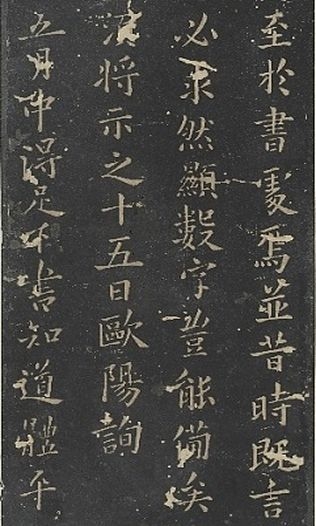 至於書處焉並昔時既言
必求然顯數字豈能備矣
須將示之十五日歐陽詢
五月中得足下書知道體平